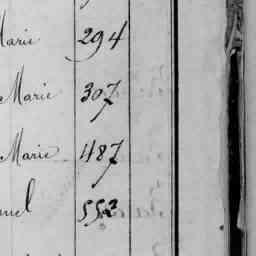 Marie 294
Marie 307
Marie 487
552